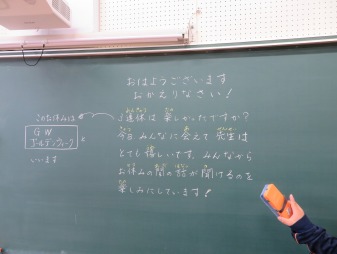 おはようございます
おかえりなさい！
連休は楽しかったですか？
今日みんなに会えて先生は
とても嬉しいです。みんなから
お休みの間の話が聞けるのを
楽しみにしています！
このお休みは
GW
ゴールデンウィーク
と
いいます